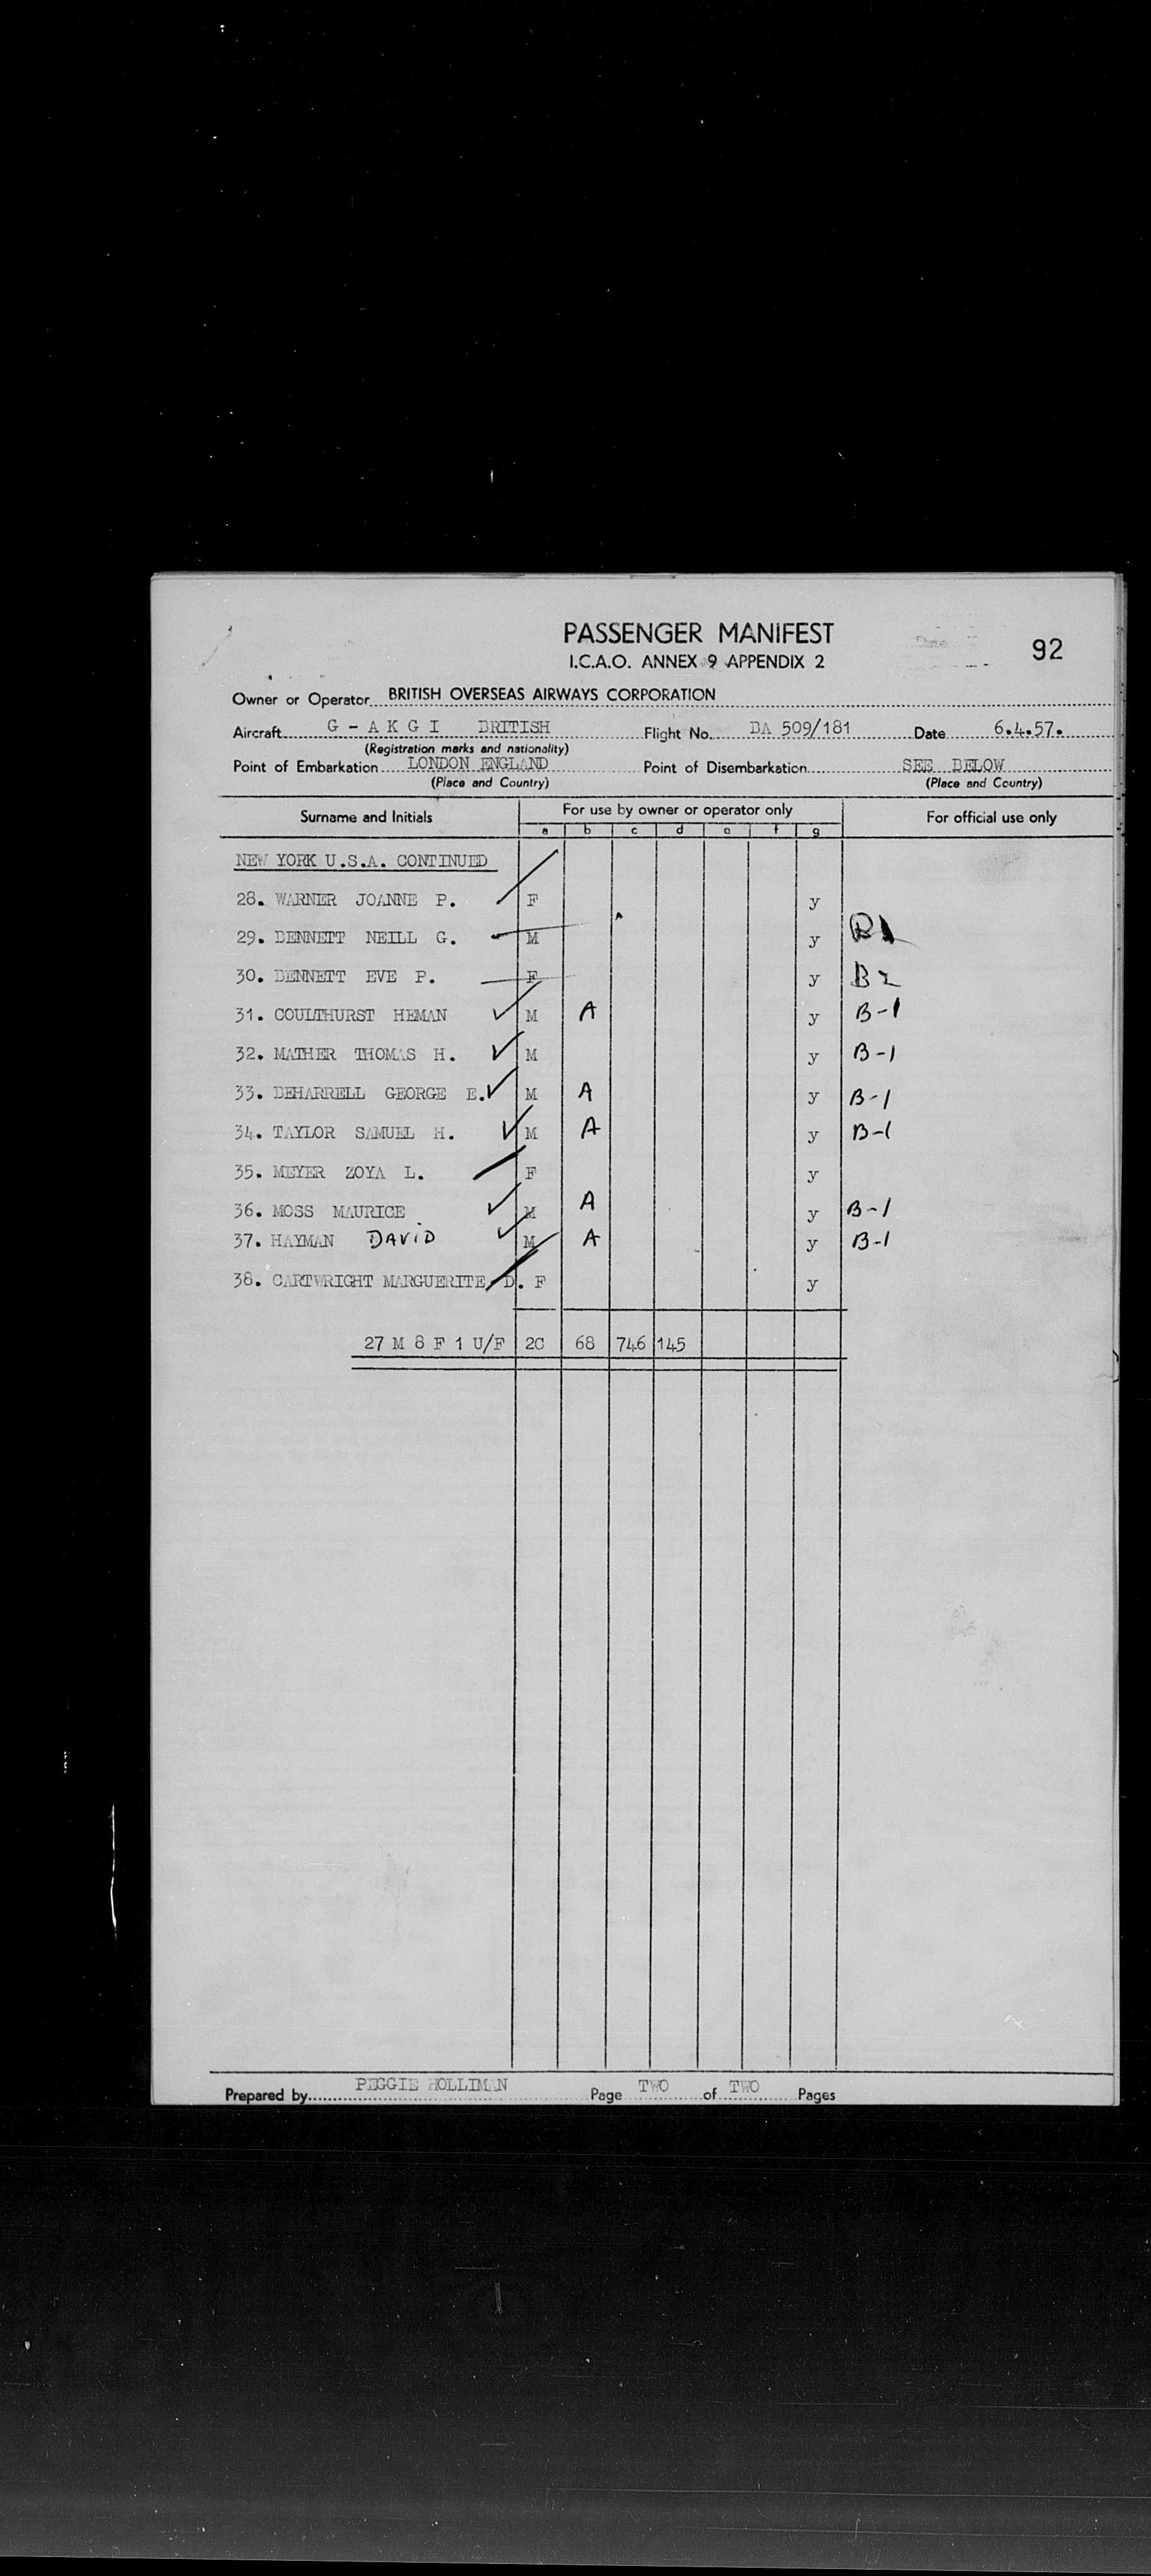 PASSENGER MANIFEST
92
I.C.A.O. ANNEX 9 APPENDIX 2
Owner or Operator BRITISH OVERSEAS AIRWAYS CORPORATION
Aircraft G - A K G I BRITISH Flight No. BA 509/181 Date 6.4.57.
(Registration marks and nationality)
Point of Embarkation LONDON ENGLAND Point of Disembarkation SEE BELOW
(Place and Country) (Place and Country)
Surname and Initials For use by owner or operator only For official use only
a b c d e f g
NEW YORK U.S.A. CONTINUED
28. WARNER JOANNE P. F y
29. BENNETT NEILL G. M y
30. BENNETT EVE P. F y B 2
31. COULTHURST HEMAN M A y B-1
32. MATHER THOMAS H. M y B-1
33. BEHARRELL GEORGE E. M A y B-1
34. TAYLOR SAMUEL H. M A y B-1
35. MEYER ZOYA L. F y
36. MOSS MAURICE M A y B-1
37. HAYMAN DAVID M A y B-1
38. CARTWRIGHT MARGUERITE D. F y
27 M 8 F 1 U/F 2C 68 746 145
Prepared by PEGGIE HOLLIMAN Page TWO of TWO Pages